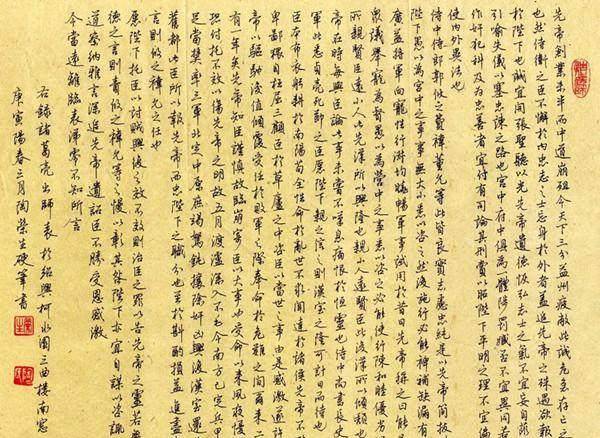 先帝創業未半而中道崩殂今天下三分益州疲敝此誠危急存亡之
也然侍衛之臣不懈于內忠志之士忘身於外者蓋追先帝之殊遇欲報
於陛下也誠宜開張聖聽以光先帝遺德恢弘志士之氣不宜妄自菲
引喻失義以塞忠諫之路也宮中府中俱為一體陟罰臧否不宜異同若
作奸犯科及為忠善者宜付有司論其刑賞以昭陛下平明之理不宜偏
使內外異法也
侍中侍郎郭攸之費禕董允等此皆良實志慮忠純是以先帝簡拔
陛下愚以為宮中之事事無大小悉以咨之然後施行必能裨補缺漏有
廣益將軍向寵性行淑均曉暢軍事試用於昔日先帝稱之曰能
眾議舉寵為督愚以為營中之事悉以咨之必能使行陣和睦優劣
所親賢臣遠小人此先漢所以興隆也親小人遠賢臣此後漢所以傾頹也
帝在時每與臣論此事未嘗不嘆息痛恨於桓靈也侍中尚書長史
軍此悉貞亮死節之臣願陛下親之信之則漢室之隆可計日而待也
臣本布衣躬耕於南陽苟全性命於亂世不求聞達於諸侯先帝不
卑鄙猥自枉屈三顧臣於草廬之中咨臣以當世之事由是感激遂許
帝以驅馳後值傾覆受任於敗軍之際奉命於危難之間爾來二
有一年矣先帝知臣謹慎故臨崩寄臣以大事也受命以來夙夜憂
恐付託不效以傷先帝之明故五月渡瀘深入不毛今南方已定兵甲
足當獎率三軍北定中原庶竭駑鈍攘除奸凶興復漢室還
舊都此臣所以報先帝而忠陛下之職分也至於斟酌損益進盡
言則攸之禕允之任也
願陛下託臣以討賊興復之效不效則治臣之罪以告先帝之靈若無
德之言則責攸之禕允等之慢以彰其咎陛下亦宜自謀以咨諏
道察納雅言深追先帝遺詔臣不勝受恩感激
今當遠離臨表涕零不知所言
右錄諸葛亮出師表於紹興柯水園三曲樓南窗
庚寅陽春三月陶榮生硬筆書